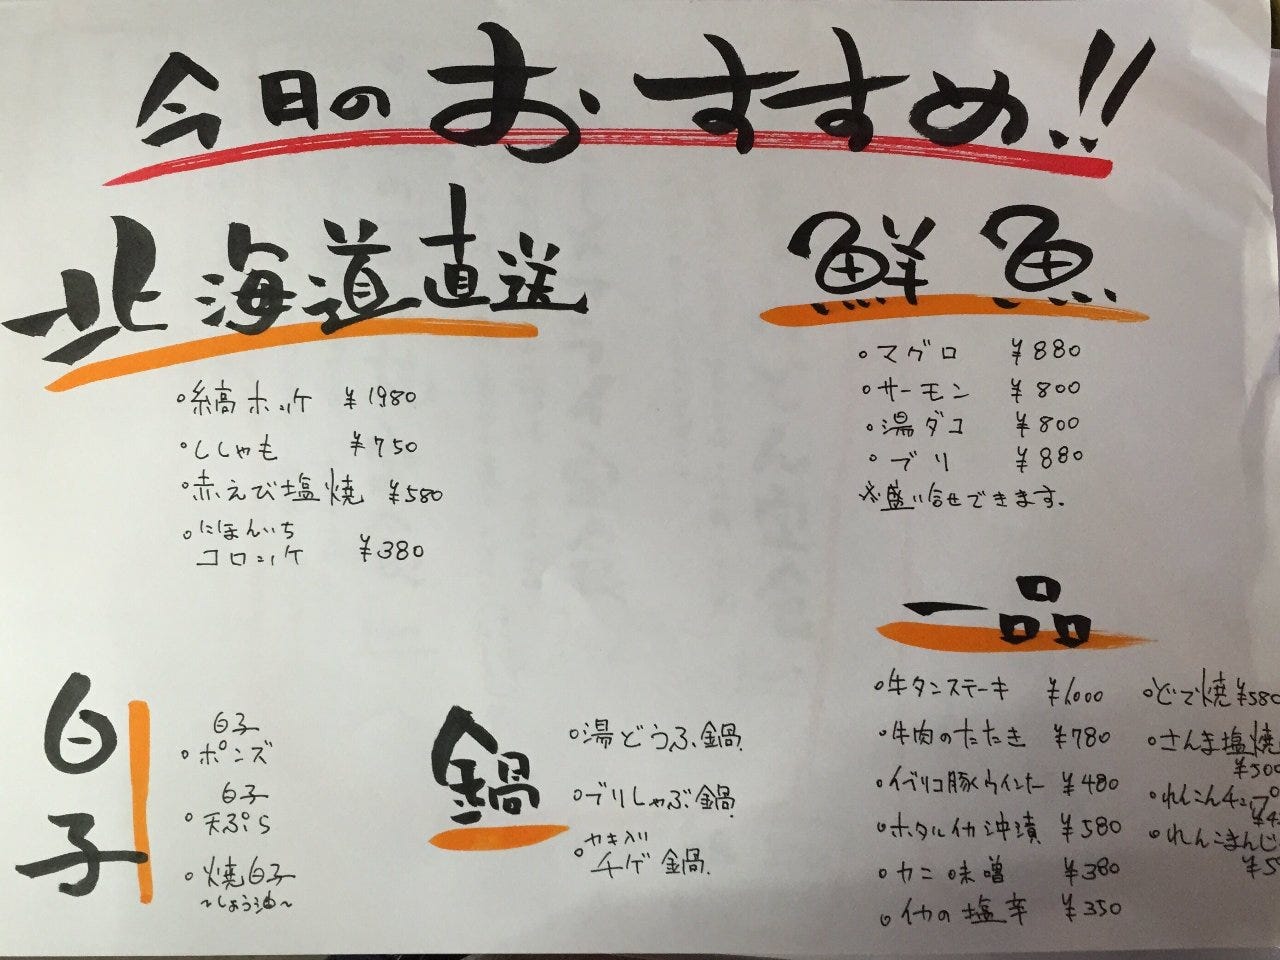 今日のおすすめ!!
北海道直送
・縞ホッケ ¥1980
・ししゃも ¥750
・赤えび塩焼 ¥580
・にほんいち
コロッケ ¥380
鮮魚
・マグロ ¥880
・サーモン ¥800
・湯ダコ ¥800
・ブリ ¥880
※盛り合せできます。
白子
白子
・ポンズ
白子
・天ぷら
・焼白子
~しょう油~
鍋
・湯どうふ鍋
・ブリしゃぶ鍋
カキ入り
・チゲ鍋
一品
・牛タンステーキ ¥1,000
・牛肉のたたき ¥780
・イベリコ豚ウインナー ¥480
・ホタルイカ沖漬 ¥580
・カニ味噌 ¥380
・イカの塩辛 ¥350
・どて焼 ¥580
・さんま塩焼
¥500
・れんこんチップ
・れんこまんじ